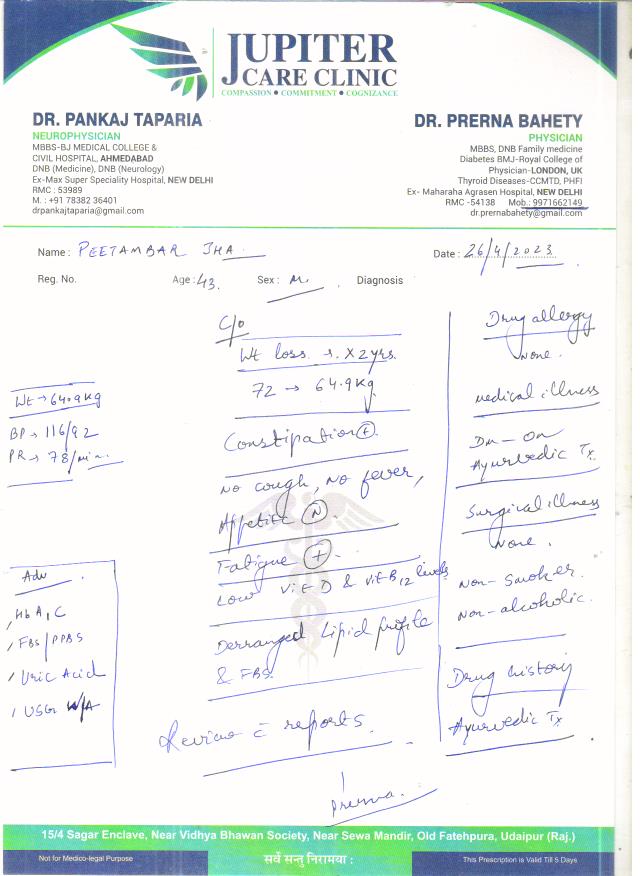 JUPITER
CARE CLINIC
COMPASSION • COMMITMENT • COGNIZANCE
DR. PANKAJ TAPARIA
NEUROPHYSICIAN
MBBS-BJ MEDICAL COLLEGE &
CIVIL HOSPITAL, AHMEDABAD
DNB (Medicine), DNB (Neurology)
Ex-Max Super Speciality Hospital, NEW DELHI
RMC : 53989
M. : +91 78382 36401
drpankajtaparia@gmail.com
DR. PRERNA BAHETY
PHYSICIAN
MBBS, DNB Family medicine
Diabetes BMJ-Royal College of
Physician-LONDON, UK
Thyroid Diseases-CCMTD, PHFI
Ex- Maharaha Agrasen Hospital, NEW DELHI
RMC -54138 Mob.: 9971662149
dr.prernabahety@gmail.com
Name : PEETAMBAR JHA
Date : 26/4/2023
Reg. No. Age : 43 Sex : M. Diagnosis
Wt → 64.9 kg
BP → 116/92
PR → 78/min.
Adv
HbA1C
FBS/PPBS
Uric Acid
USG W/A
C/o
Wt loss X 2 yrs.
72 → 64.9 kg
Constipation (+)
No cough, No fever,
Appetite (N)
Fatigue (+)
Low Vit D & Vit B12 levels
Derranged Lipid profile
& FBS.
Review c̄ reports
Prerna.
Drug allergy
None.
Medical illness
DM - On
Ayurvedic Tx.
Surgical illness
None.
Non-Smoker.
Non-alcoholic.
Drug history
Ayurvedic Tx
15/4 Sagar Enclave, Near Vidhya Bhawan Society, Near Sewa Mandir, Old Fatehpura, Udaipur (Raj.)
Not for Medico-legal Purpose सर्वे सन्तु निरामया : This Prescription is Valid Till 5 Days